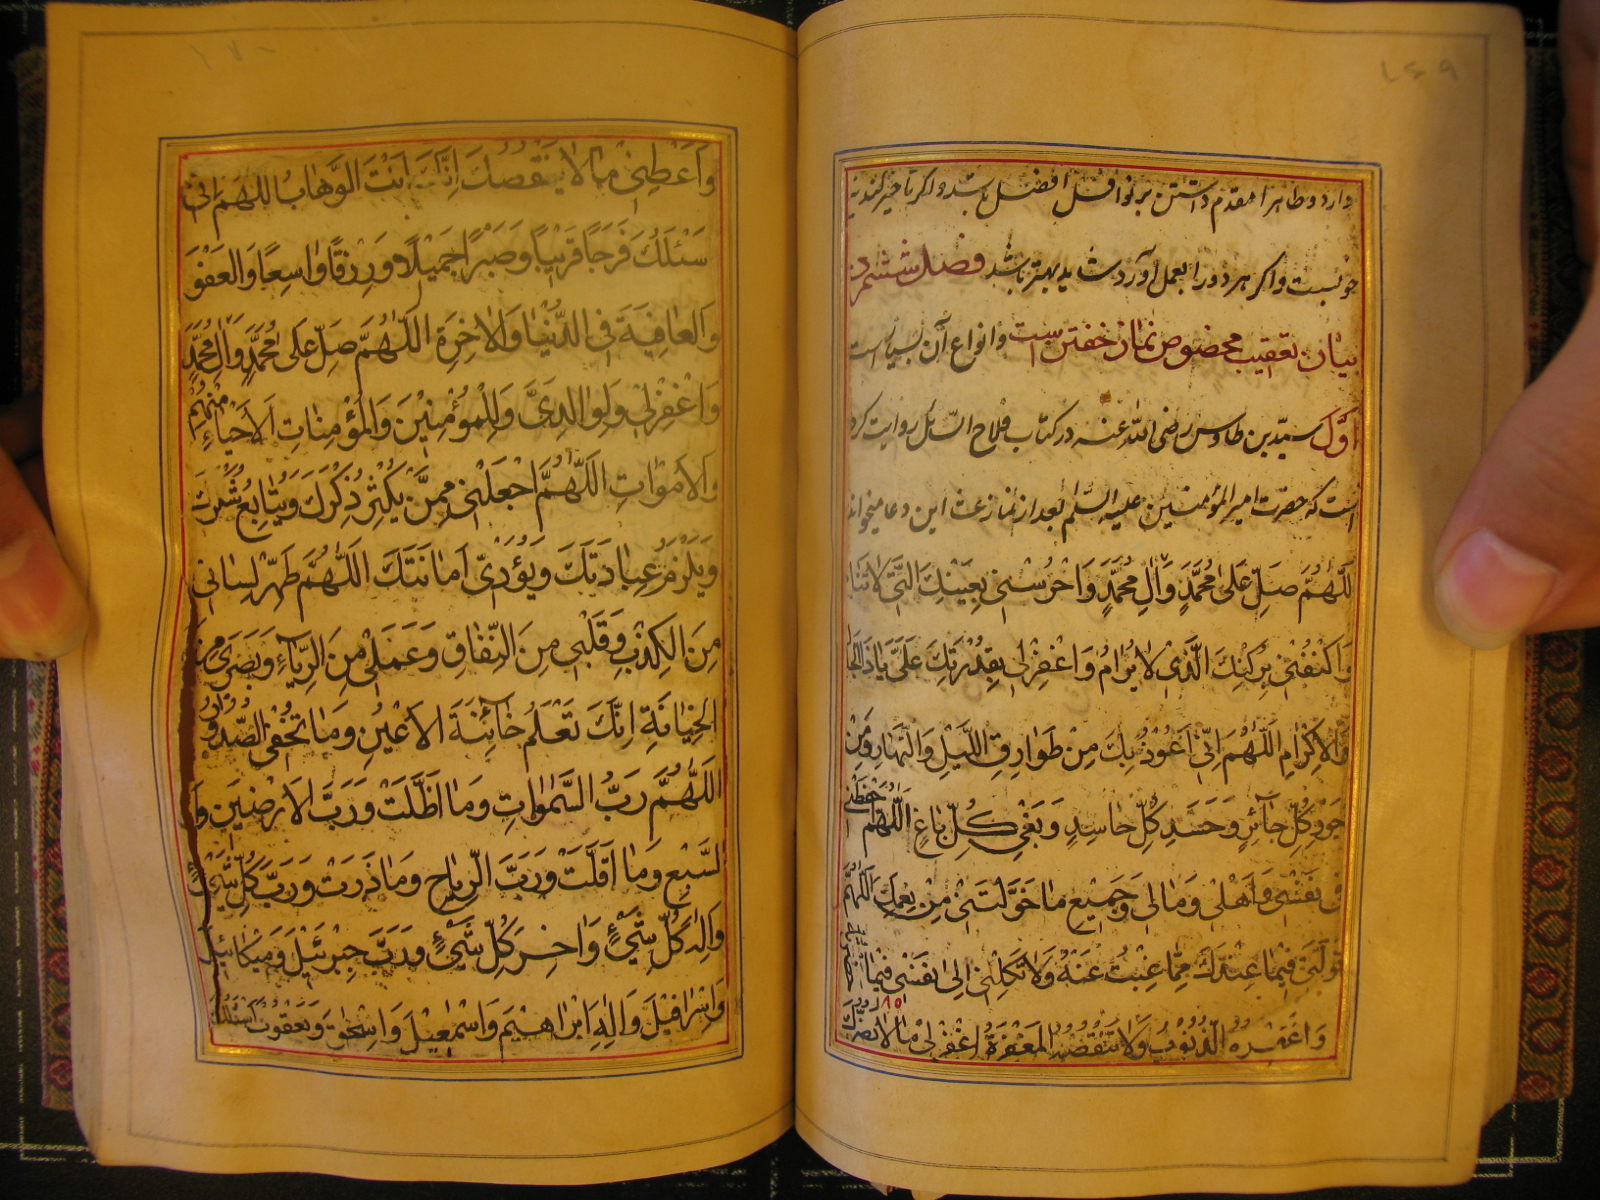 ۱۶۹
وارد و ظاهرا مقدم داشتن بر نوافل افضل باشد و اکر تاخیر کند نیز
خوبست و اکر هر دو را بعمل آورد شاید بهتر باشد فصل ششم در
بیان تعقیب مخصوص نماز خفتن است و انواع آن بسیار است
اوّل سیّد بن طاوس رضی اللّه عنه در کتاب فلاح السّائل روایت کرده
است که حضرت امیر المؤمنین علیه السّلام بعد از نماز عشا این دعا میخواند
اَللّٰهُمَّ صَلِّ عَلىٰ مُحَمَّدٍ وَاٰلِ مُحَمَّدٍ وَاحْرُسْنى بِعَيْنِكَ الَّتى لا تَنامُ
وَاكْنُفْنى بِرُكْنِكَ الَّذى لا يُرامُ وَاغْفِرْ لى بِقُدْرَتِكَ عَلَىَّ يا ذَا الْجَلالِ
وَالْاِكْرامِ اَللّٰهُمَّ اِنّى اَعُوذُ بِكَ مِنْ طَوارِقِ اللَّيْلِ وَالنَّهارِ وَمِنْ
جَوْرِ كُلِّ جآئِرٍ وَحَسَدِ كُلِّ حاسِدٍ وَبَغْىِ كُلِّ باغٍ اَللّٰهُمَّ احْفَظْنى
فى نَفْسى وَاَهْلى وَمالى وَجَميعِ ما خَوَّلْتَنى مِنْ نِعَمِكَ اَللّٰهُمَّ
تَوَلَّنى فيما عِنْدَكَ مِمّا غِبْتُ عَنْهُ وَلا تَكِلْنى اِلىٰ نَفْسى فيما حَضَرْتُهُ
وَلا تَنْقُصُهُ الْمَغْفِرَةُ اغْفِرْ لى ما لا يَضُرُّكَ
۱۷۰
وَاَعْطِنى ما لا يَنْقُصُكَ اِنَّكَ اَنْتَ الْوَهّابُ اَللّٰهُمَّ اِنّى
اَسْئَلُكَ فَرَجًا قَريبًا وَصَبْرًا جَميلًا وَرِزْقًا واسِعًا وَالْعَفْوَ
وَالْعافِيَةَ فِى الدُّنْيا وَالْاٰخِرَةِ اَللّٰهُمَّ صَلِّ عَلىٰ مُحَمَّدٍ وَاٰلِ مُحَمَّدٍ
وَاغْفِرْ لى وَلِوالِدَىَّ وَلِلْمُؤْمِنينَ وَالْمُؤْمِناتِ الْاَحْياءِ مِنْهُمْ
وَالْاَمْواتِ اَللّٰهُمَّ اجْعَلْنى مِمَّنْ يُكْثِرُ ذِكْرَكَ وَيُتابِعُ شُكْرَكَ
وَيَلْزَمُ عِبادَتَكَ وَيُؤَدّى اَمانَتَكَ اَللّٰهُمَّ طَهِّرْ لِسانى
مِنَ الْكِذْبِ وَقَلْبى مِنَ النِّفاقِ وَعَمَلى مِنَ الرِّيآءِ وَبَصَرى مِنَ
الْخِيانَةِ اِنَّكَ تَعْلَمُ خآئِنَةَ الْاَعْيُنِ وَما تُخْفِى الصُّدُورُ
اَللّٰهُمَّ رَبَّ السَّمٰواتِ وَما اَظَلَّتْ وَرَبَّ الْاَرَضينَ
السَّبْعِ وَما اَقَلَّتْ وَرَبَّ الرِّياحِ وَما ذَرَتْ وَرَبَّ كُلِّ شَىْءٍ
وَاِلٰهَ كُلِّ شَىْءٍ وَاٰخِرَ كُلِّ شَىْءٍ وَرَبَّ جِبْرَئيلَ وَميكآئيلَ
وَاِسْرافيلَ وَاِلٰهَ اِبْراهيمَ وَاِسْمٰعيلَ وَاِسْحٰقَ وَيَعْقُوبَ اَسْئَلُكَ